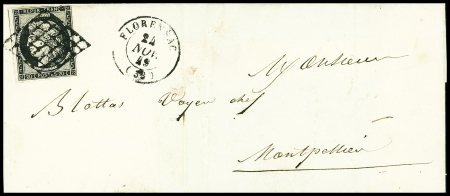 REPUB. FRANC.
FLORENSAC
24
NOV.
49
(33)
Monsieur
Blottas Voyer chef
Montpellier